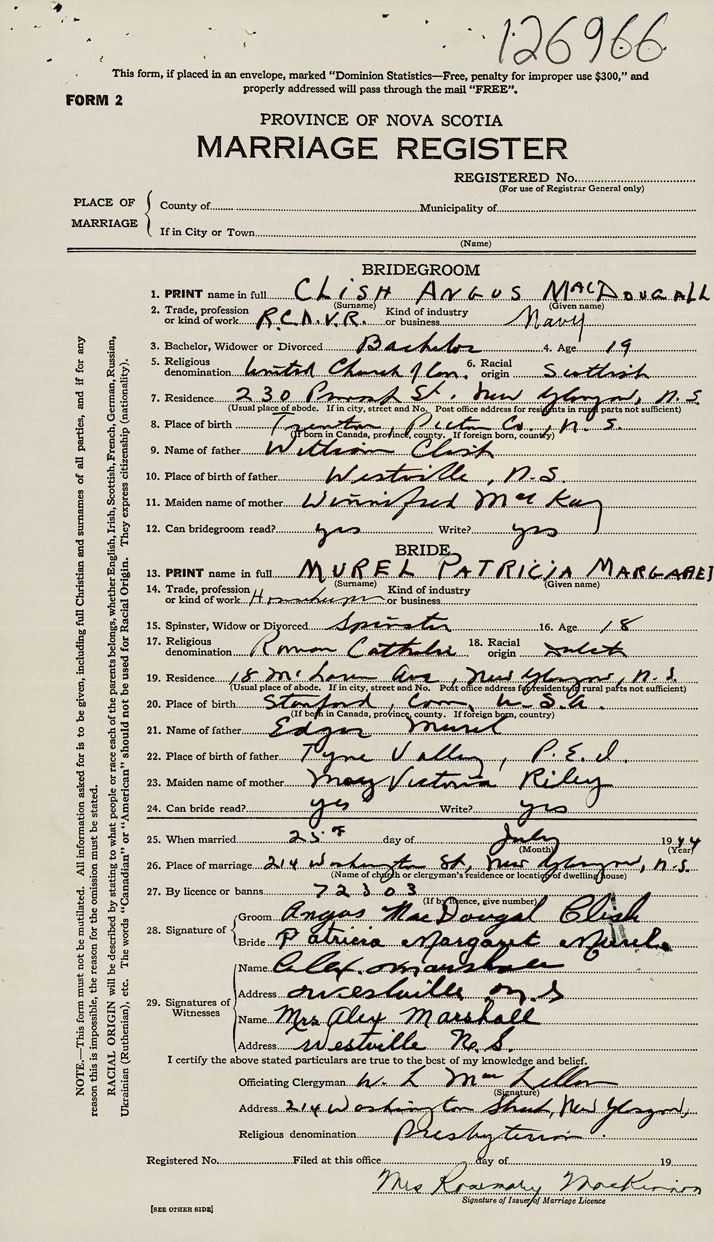 126966
This form, if placed in an envelope, marked "Dominion Statistics—Free, penalty for improper use $300," and
properly addressed will pass through the mail "FREE".
FORM 2
PROVINCE OF NOVA SCOTIA
MARRIAGE REGISTER
REGISTERED No.
(For use of Registrar General only)
PLACE OF MARRIAGE
County of Municipality of
If in City or Town
(Name)
BRIDEGROOM
1. PRINT name in full CLISH ANGUS MACDOUGALL
(Surname) (Given name)
2. Trade, profession or kind of work R.C.N.V.R. Kind of industry or business Navy
3. Bachelor, Widower or Divorced Bachelor 4. Age 19
5. Religious denomination United Church of Can. 6. Racial origin Scottish
7. Residence 230 St. New Glasgow, N.S.
(Usual place of abode. If in city, street and No. Post office address for residents in rural parts not sufficient)
8. Place of birth Trenton, Pictou Co., N.S.
(If born in Canada, province, county. If foreign born, country)
9. Name of father William Clish
10. Place of birth of father Westville, N.S.
11. Maiden name of mother Winnifred MacKay
12. Can bridegroom read? yes Write? yes
BRIDE
13. PRINT name in full MUREL PATRICIA MARGARET
(Surname) (Given name)
14. Trade, profession or kind of work Kind of industry or business
15. Spinster, Widow or Divorced Spinster 16. Age 18
17. Religious denomination Roman Catholic 18. Racial origin
19. Residence 18 McLaren Ave, New Glasgow, N.S.
(Usual place of abode. If in city, street and No. Post office address for residents in rural parts not sufficient)
20. Place of birth Stanford, Conn, U.S.A.
(If born in Canada, province, county. If foreign born, country)
21. Name of father Edgar Murel
22. Place of birth of father Tyne Valley, P.E.I.
23. Maiden name of mother May Victoria Riley
24. Can bride read? yes Write? yes
25. When married 25th day of July 1944
(Month) (Year)
26. Place of marriage 214 Washington St, New Glasgow, N.S.
(Name of church or clergyman's residence or location of dwelling house)
27. By licence or banns 72303
(If by licence, give number)
28. Signature of
Groom Angus MacDougal Clish
Bride Patricia Margaret Murel
29. Signatures of Witnesses
Name Alex. Marshall
Address Westville N.S
Name Mrs Alex Marshall
Address Westville N.S.
I certify the above stated particulars are true to the best of my knowledge and belief.
Officiating Clergyman W. L. MacLellan
(Signature)
Address 214 Washington Street, New Glasgow,
Religious denomination Presbyterian.
Registered No. Filed at this office day of 19
Mrs Rosemary MacKinnon
Signature of Issuer of Marriage Licence
[SEE OTHER SIDE]
NOTE.—This form must not be mutilated. All information asked for is to be given, including full Christian and surnames of all parties, and if for any
reason this is impossible, the reason for the omission must be stated.
RACIAL ORIGIN will be described by stating to what people or race each of the parents belongs, whether English, Irish, Scottish, French, German, Russian,
Ukrainian (Ruthenian), etc. The words "Canadian" or "American" should not be used for Racial Origin. They express citizenship (nationality).